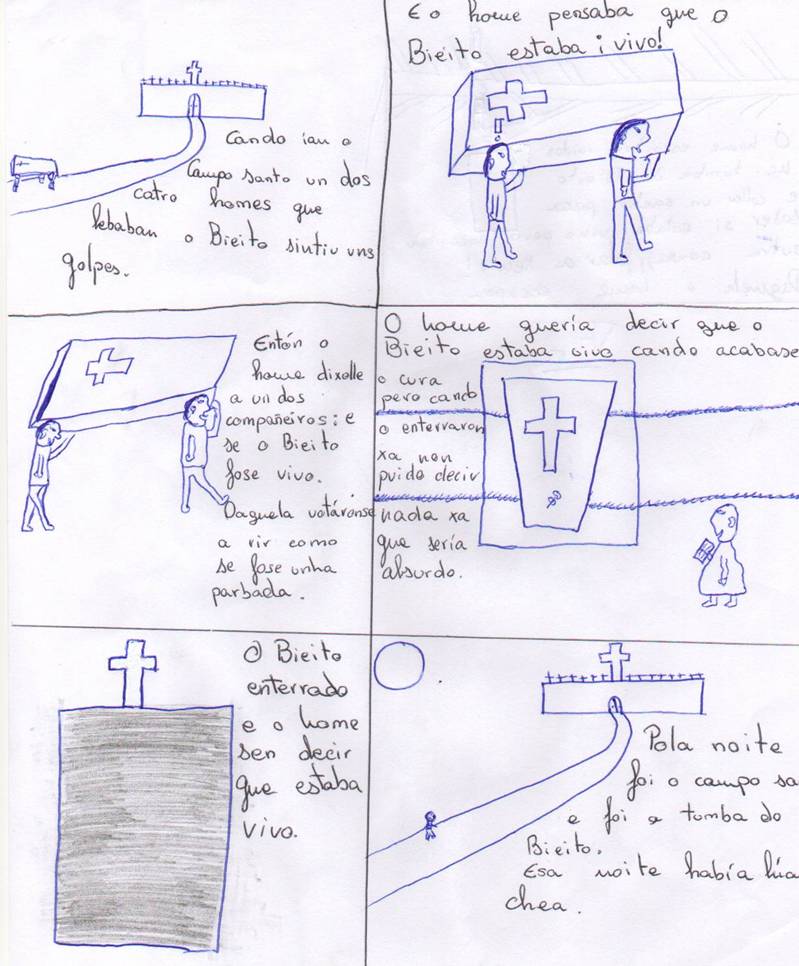 Cando ían o
Campo santo un dos
catro homes que
lebaban o Bieito sintiu uns
golpes.
E o home pensaba que o
Bieito estaba ¡vivo!
Entón o
home dixolle
a un dos
compañeiros: e
se o Bieito
fose vivo.
Daquela votáronse
a rir como
se fose unha
parbada.
O home quería decir que o
Bieito estaba vivo cando acabase
o cura
pero cando
o enterraron
xa non
puido decir
nada xa
que sería
absurdo.
O Bieito
enterrado
e o home
sen decir
que estaba
vivo.
Pola noite
foi o campo sa
e foi a tomba do
Bieito.
Esa noite había lúa
chea.